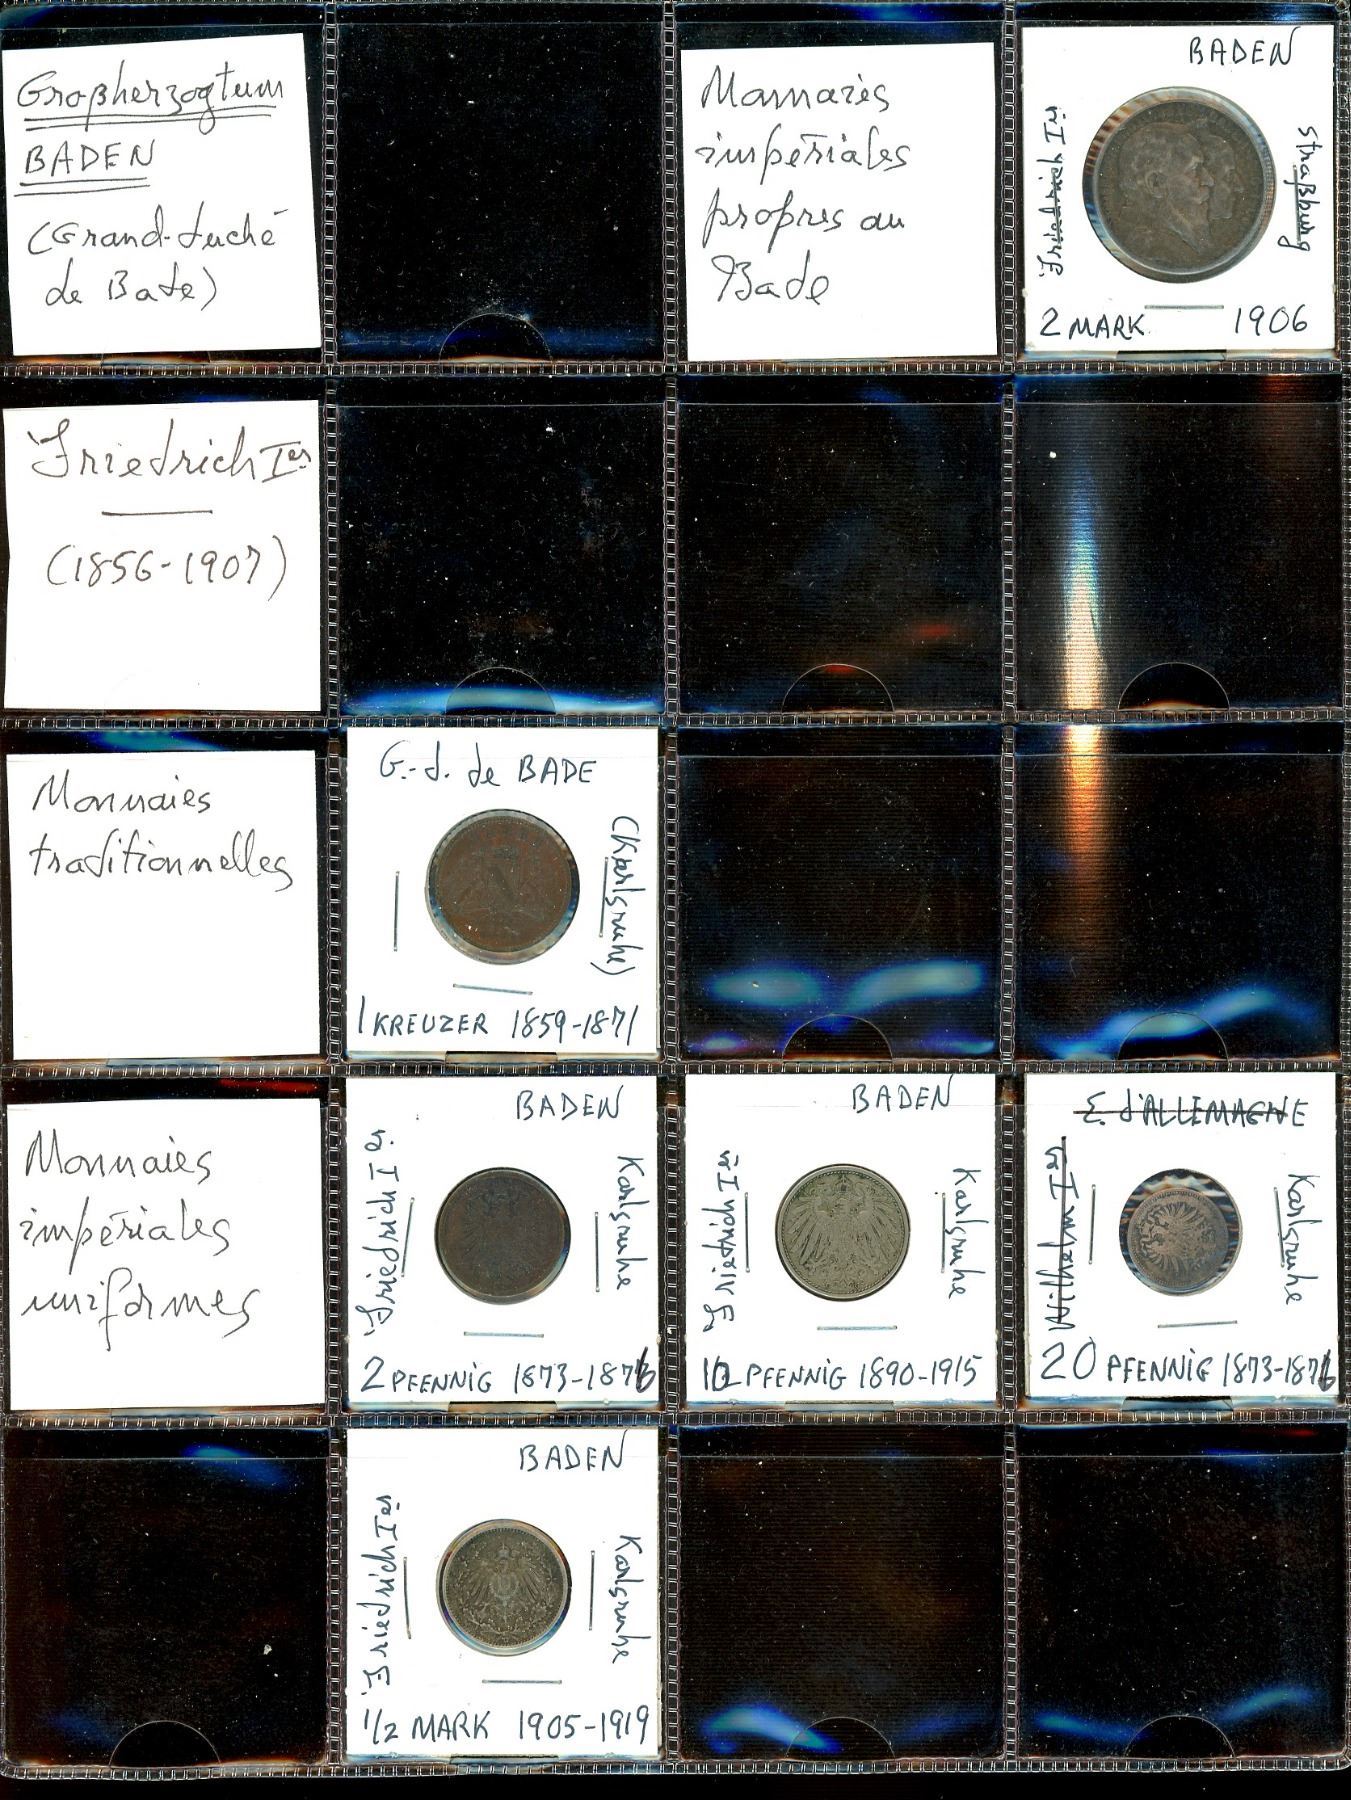 Großherzogtum
BADEN
(Grand-duché
de Bade)
Monnaies
impériales
propres au
Bade
BADEN
Friedrich Ier
Straßburg
2 MARK 1906
Friedrich Ier
(1856-1907)
Monnaies
traditionnelles
G.-d. de BADE
(Karlsruhe)
1 KREUZER 1859-1871
Monnaies
impériales
uniformes
BADEN
Friedrich Ier
Karlsruhe
2 PFENNIG 1873-1876
BADEN
Friedrich Ier
Karlsruhe
10 PFENNIG 1890-1915
E. d'ALLEMAGNE
Wilhelm Ier
Karlsruhe
20 PFENNIG 1873-1876
BADEN
Friedrich Ier
Karlsruhe
1/2 MARK 1905-1919